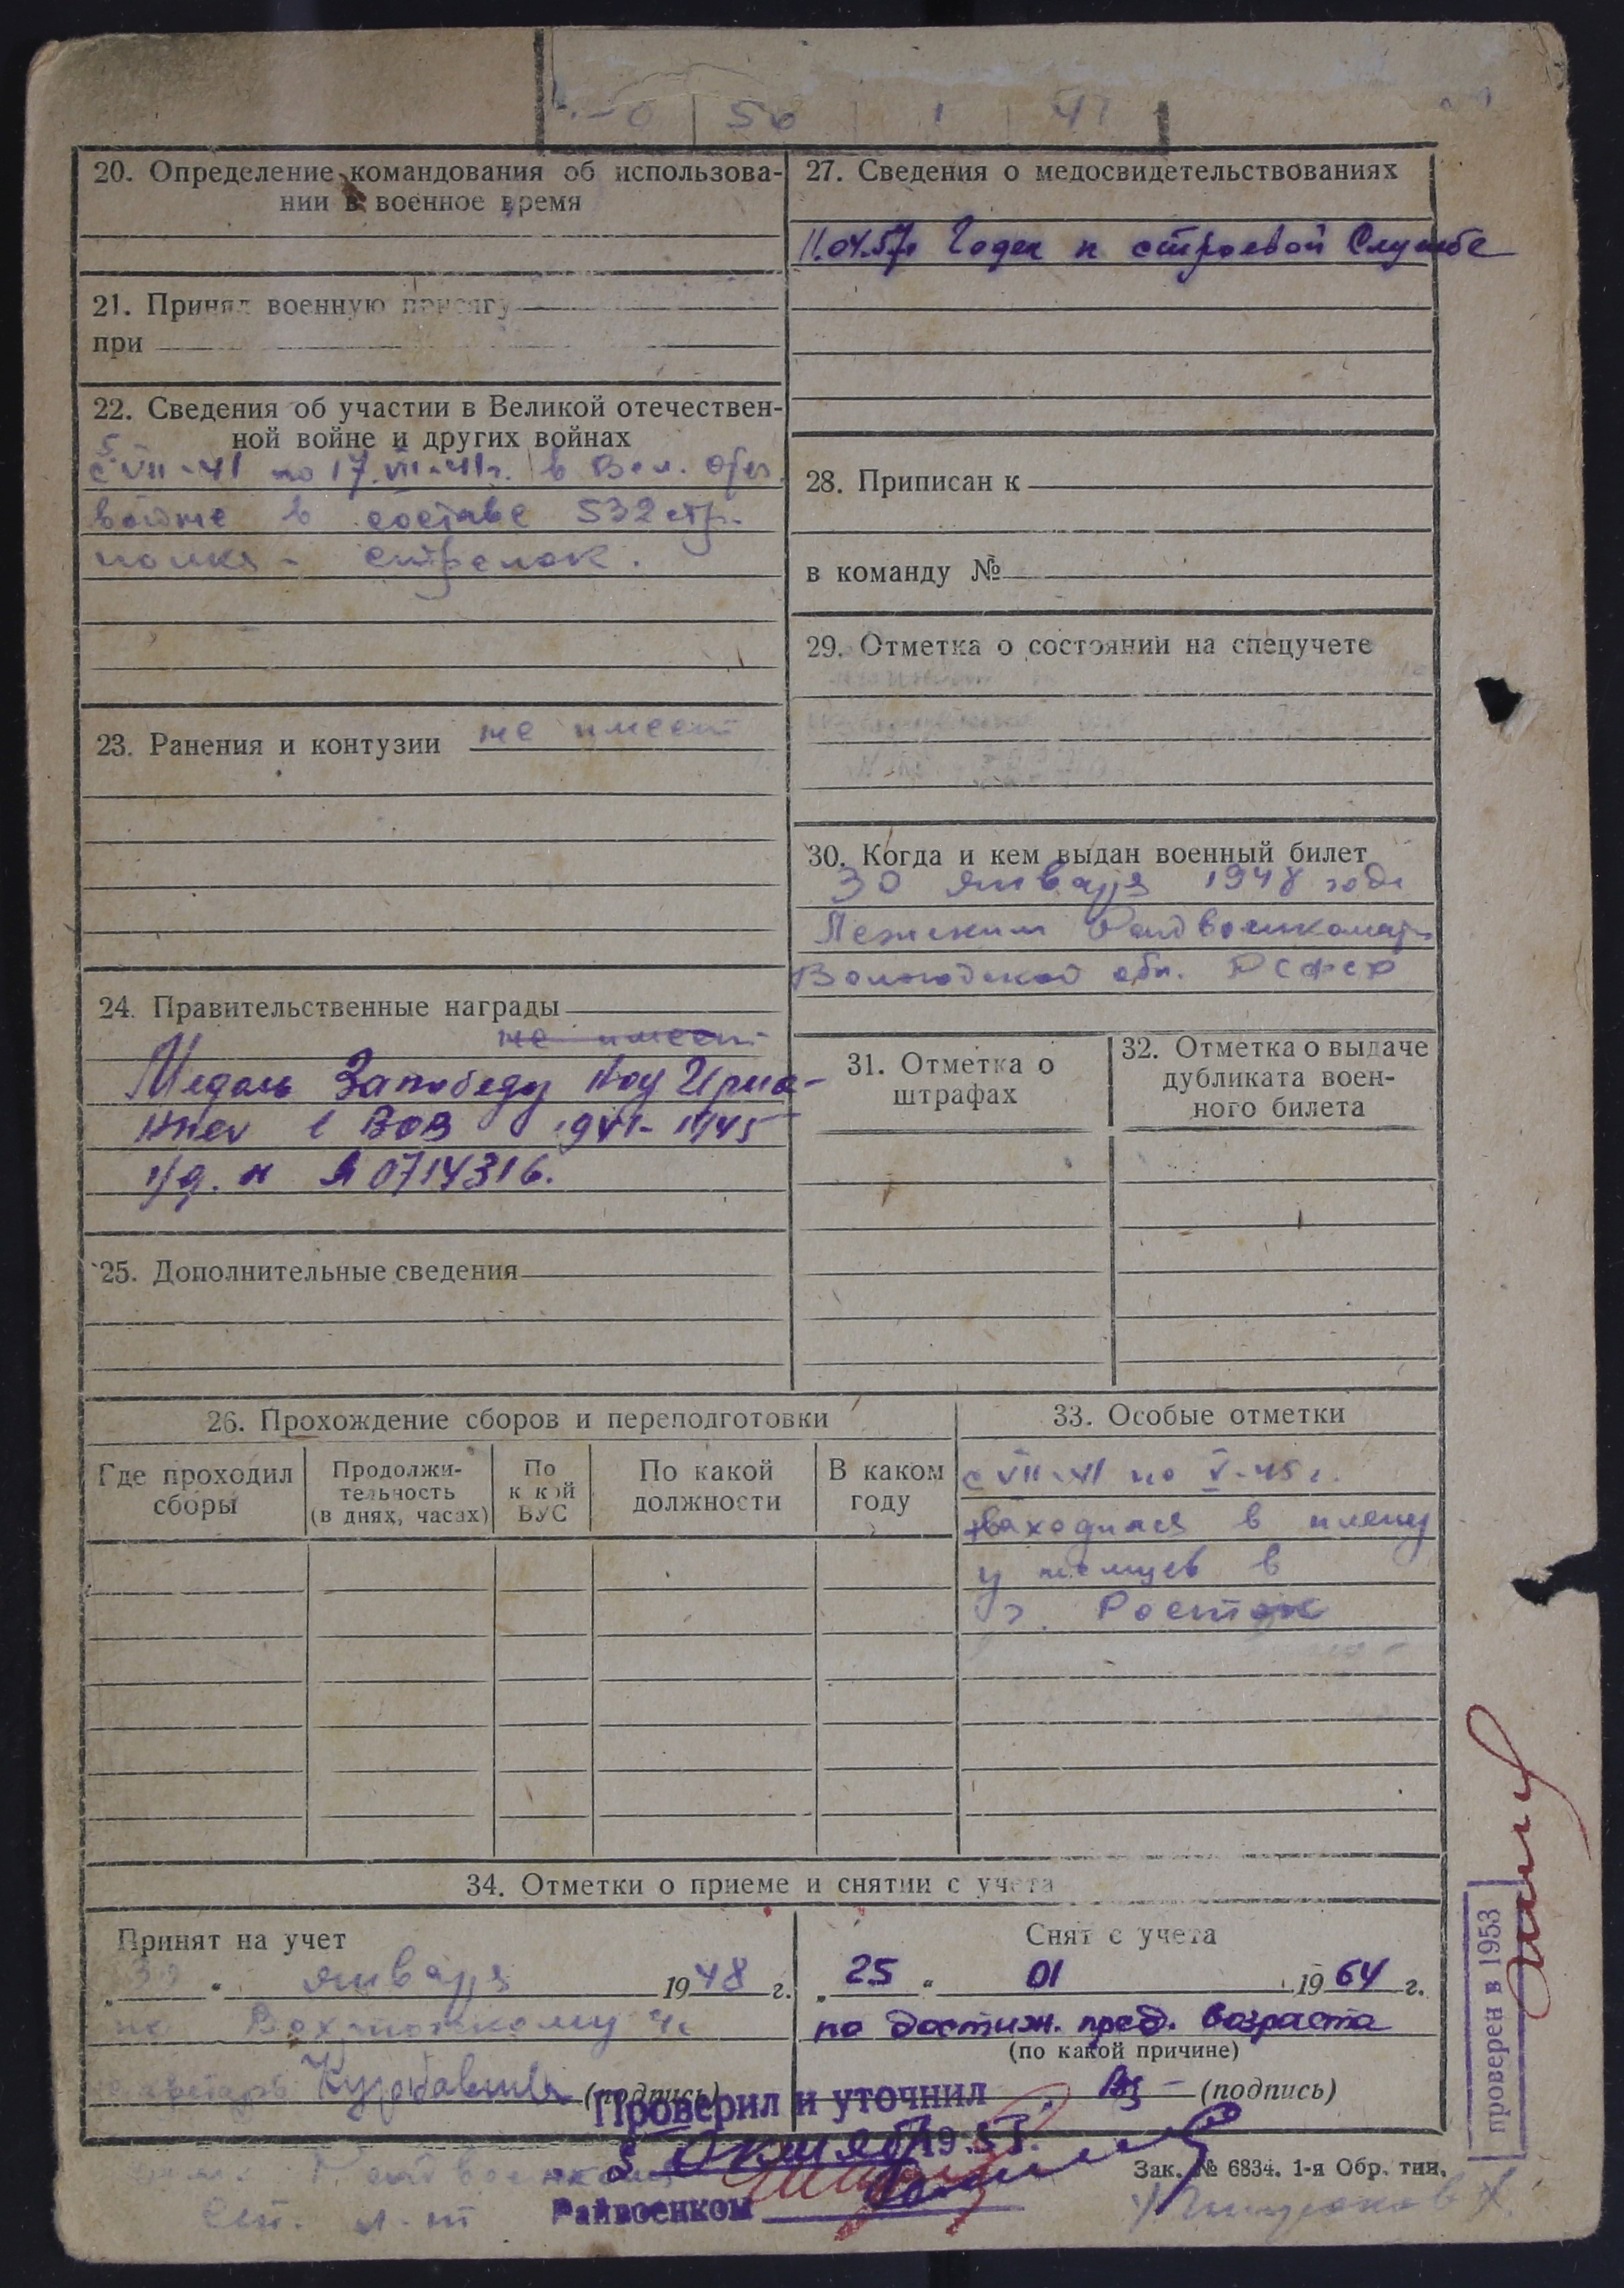 56 1 41
20. Определение командования об использова-
нии в военное время
21. Принял военную присягу
при
22. Сведения об участии в Великой отечествен-
ной войне и других войнах
с 5 VII-41 по 17.VII-41г. в Вел. отеч.
войне в составе 532 стр.
полка - стрелок.
23. Ранения и контузии не имеет
24. Правительственные награды
не имеет
Медаль За победу Над Герма-
нией в ВОВ 1941-1945
уд. н Я 0714316.
25. Дополнительные сведения
27. Сведения о медосвидетельствованиях
11.04.57г Годен к строевой Службе
28. Приписан к
в команду №
29. Отметка о состоянии на спецучете
30. Когда и кем выдан военный билет
30 января 1948 года
Лежским Райвоенкомат
Вологодской обл. РСФСР
31. Отметка о
штрафах
32. Отметка о выдаче
дубликата воен-
ного билета
26. Прохождение сборов и переподготовки
Где проходил
сборы
Продолжи-
тельность
(в днях, часах)
По
к кой
ВУС
По какой
должности
В каком
году
33. Особые отметки
с VII-41 по V-45г.
находился в плену
у немцев в
г. Росток
34. Отметки о приеме и снятии с учета
Принят на учет
„30 " января 1948 г.
по
(подпись)
Снят с учета
„25 " 01 1964 г.
по достиж. пред. возраста
(по какой причине)
(подпись)
Проверил и уточнил
5 октября 19
Райвоенком
Райвоенком
Зак. № 6834. 1-я Обр. тип.
проверен в 1953